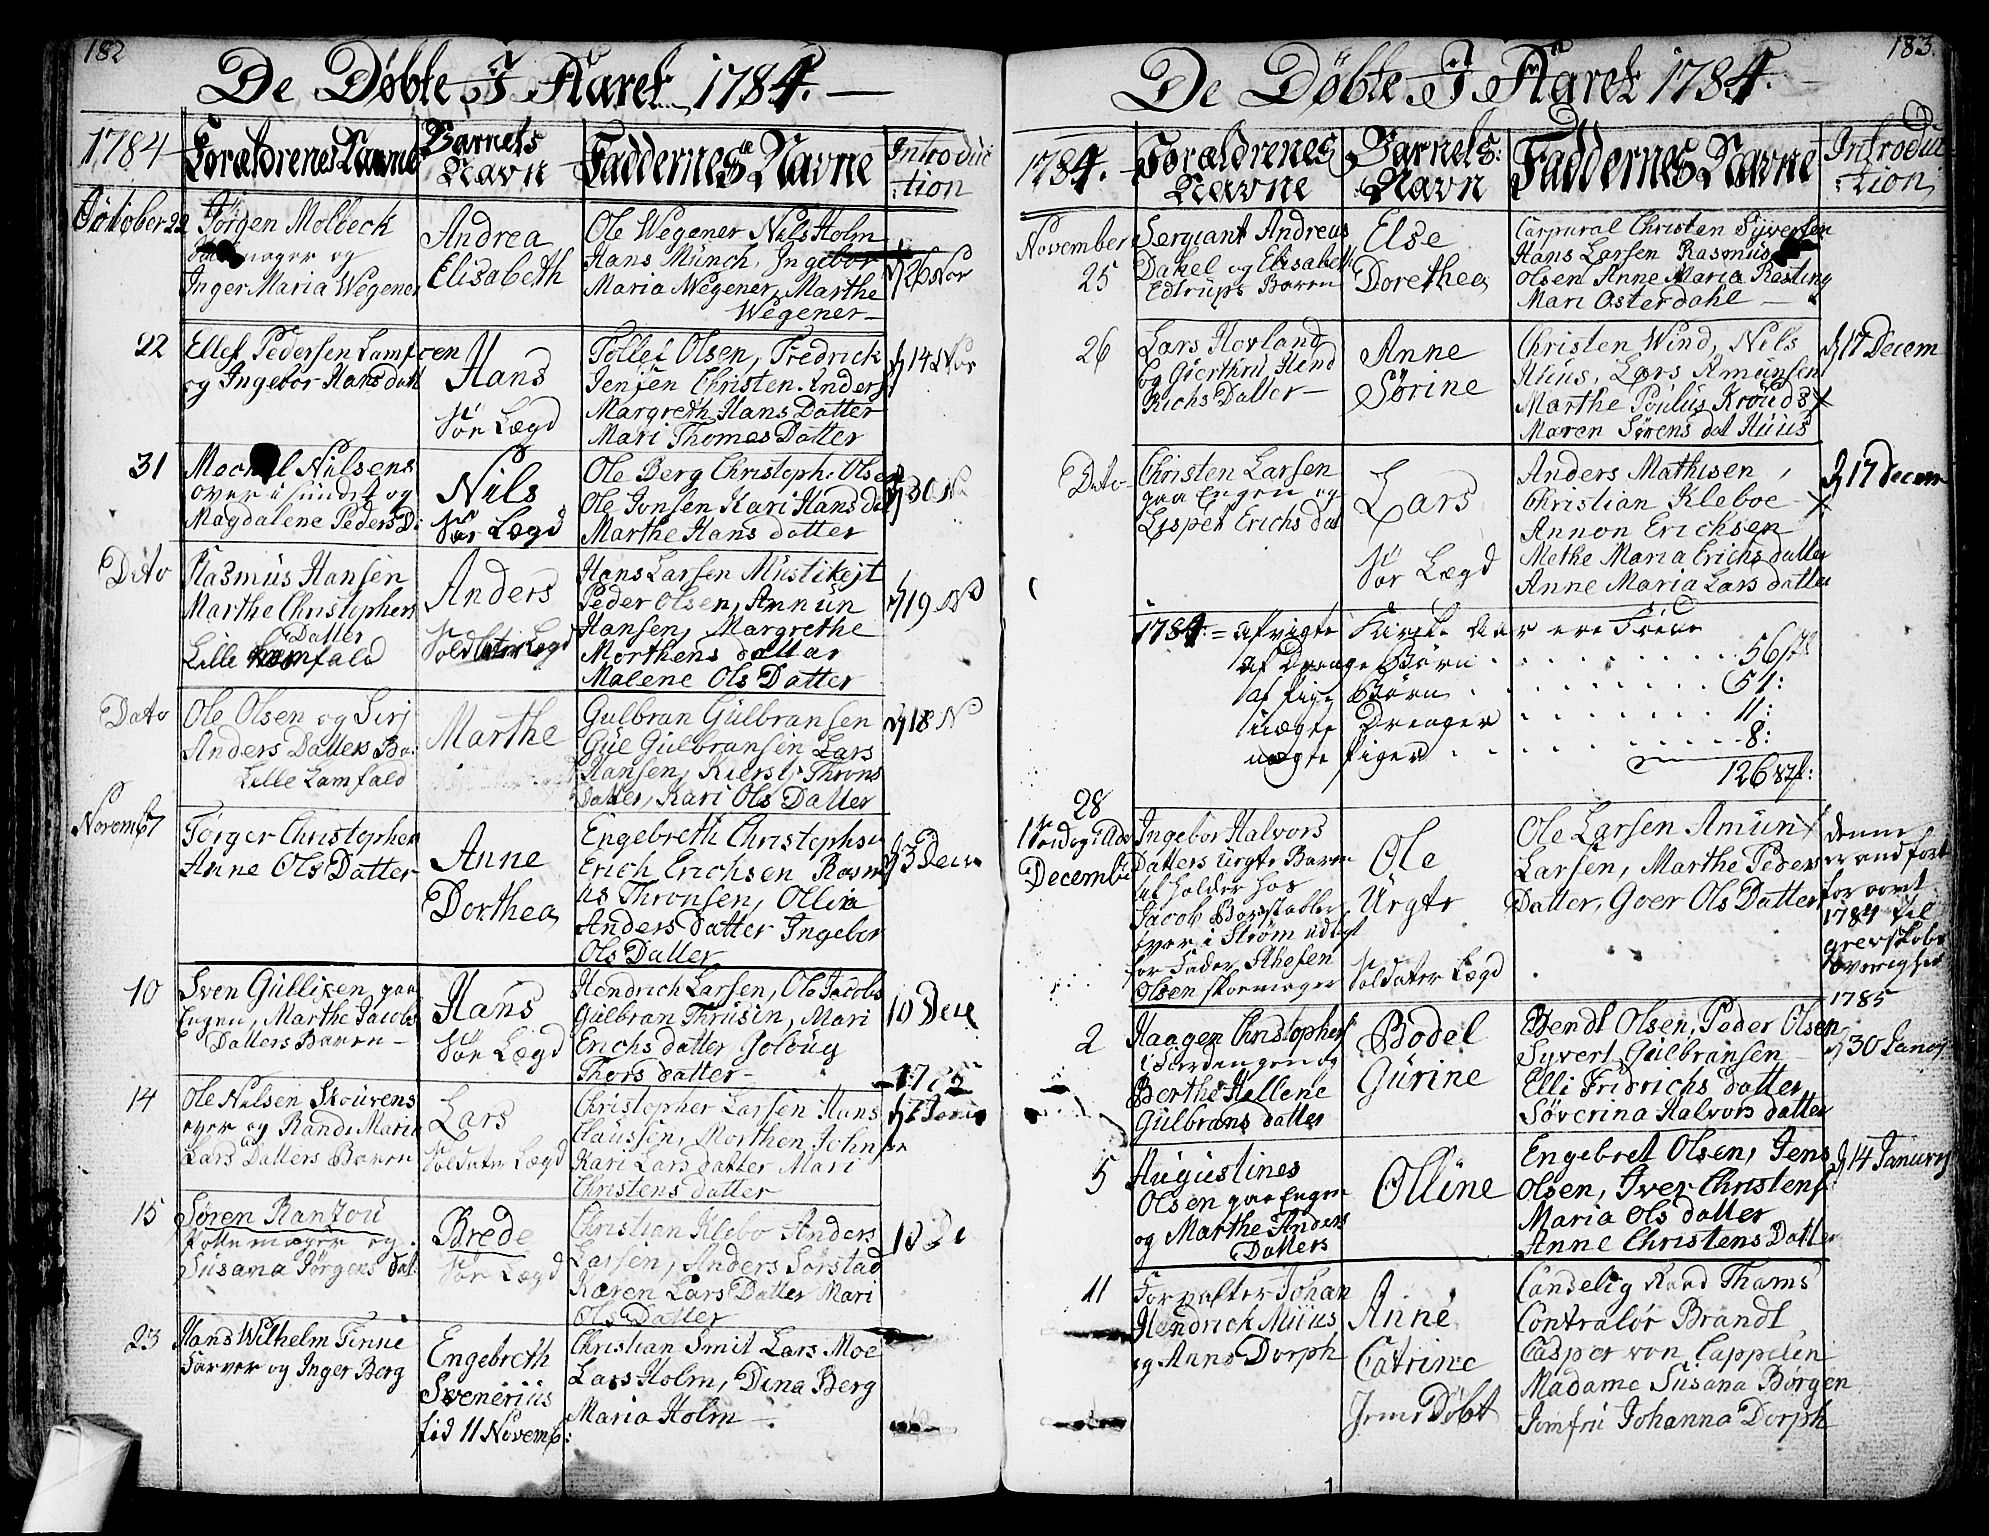 182
De Døbte I Aaret 1784.
1784
Forældrenes Navne
Barnets Navn
Faddernes Navne
Introduc:tion
October 22
Jørgen Molbeck
mager og
Inger Maria Wegener
Andrea
Elisabeth
Ole Wegener Nils Holm
Hans Münch, Ingebor
Maria Wegener, Marthe
Wegener
26 Nov
22
Ellef Pedersen Lamfoen
og Ingebor Hans datt
Hans
Sør Lægd
Tollef Olsen, Fredrick
Jensen Christen Anders
Margreth Hans Datter
Mari Thomes Datter
14 Nov
31
Nilsens
over i Sundet og
Magdalene Peders D:
Nils
Sør Lægd
Ole Berg Christoph. Olsen
Ole Jonsen Kari Hans dat
Marthe Hans datter
30 N
Dito
Rasmus Hansen
Marthe Christophers
Datter
Lille Lamfald
Anders
Soldater Lægd
Hans Larsen Mustikejt
Peder Olsen, Annün
Hansen, Margrethe
Morthens dattar
Malene Ols Datter
19 N
Dato
Ole Olsen og Sirj
Anders Datters Ba:
Lille Lamfald
Marthe
Gulbran Gülbransen
Gül Gülbransen Lars
Hansen, Kiersty Throns
Datter, Kari Ols Datter
18 N
Novemb 7
Torger Christophen
Anne Ols Datter
Anne
Dorthea
Engebreth Christophse
Erich Erichsen Rasm
us Thronsen, Ollia
Anders datter Ingebor
Ols Datter
3 Decem
10
Sven Güllixen paa
Engen, Marthe Jacobs
Datters Baren
Hans
Sør Lægd
Hendrich Larsen, Ole Jacobs
Gülbran Thrüsen, Mari
Erichs datter Golaug
Thors datter
10 Dece
14
Ole Nilsen Skouvens
eyer og Randi Maria
Lars Datters Baren
Lars
Soldater Lægd
Christopher Larsen Hans
Claussen, Morthen John
Kari Lars datter Mari
Christens datter
1785
15
Søren Rantzou
Pottemager og
Susana Jörgens dat:
Brede
Sør Lægd
Christian Klebo Anders
Larsen, Anders Sørstad
Karen Lars Datter Mari
Ols Datter
10 De
23
Hans Wilhelm Tinne
Farver og Inger Berg
Engebreth
Svenerüs
fød 11 Novemb:
Christian Smit Lars Moe
Lars Holm, Dina Berg
Maria Holm
183.
De Døbte I Aaret 1784.
1784.
Forældrenes Navne
Barnets Navn
Faddernes Navne
Introduc:tion
November 25
Sergiant Andreas
Dahel og Elisabeth
Edtrups Baren
Else
Dorethea
Corpural Christen Syversen
Hans Larsen Rasmus
Olsen Anne Maria Rasting
Mari Osterdahl
26
Lars Hovland
og Gierthru Hend
Richs Datter
Anne
Sørine
Christen Wind, Nils
Huus, Lars Amünsen
Marthe Poulus Kroud
Maren Sørens dat Huus
17 Decem
Dito
Christen Larsen
paa Engen og
Lisbet Erichs dat
Lars
Sør Lægd
Anders Mathisen
Christian Kleboe
Annon Erichsen
Methe Maria Erichs datter
Anne Maria Lars datter
17 Decem
1784 = afvigte Kirke Aar ere Fødde
af Drenge Børn . . . 56
af Pige Børn . . . 51:
uægte Drenger . . . 11:
uægte Piger . . . 8:
126
28
Søndag i Adv
December
Ingebor Halvors
Datters Uegte Baren
opholder hos
Jacob
over i Strøm udlagt
for Fader Sthefen
Olsen skomager
Ole
Uegte
Soldater Lægd
Ole Larsen Amun
Larsen, Marthe Peders
Datter, Goer Ols Datter
denne
er andført
for
1784 til
1785
2
Haagen Christophers
i Jordengen og
Berthe Hellene
Gülbrans datter
Bodel
Gürine
Bendt Olsen, Peder Olsen
Syvert Gülbransen
Elli Fridrichs datter
Søverina Halvors datter
30 Janu
5
Augustines
Olsen paa Engen
og Marthe Anders
Datters
Olline
Engebret Olsen, Jens
Olsen, Iver Christens
Maria Ols datter
Anne Christens Datter
14 Januarj
11
Forvalter Johan
Hendrick Müus
og Anna Dorph
Anne
Catrine
Jemedøbt
Candelig Raad Thams
Contraløor Brandt
Casper von Cappelen
Madame Susana Børgen
Jomfru Johanna Dorph